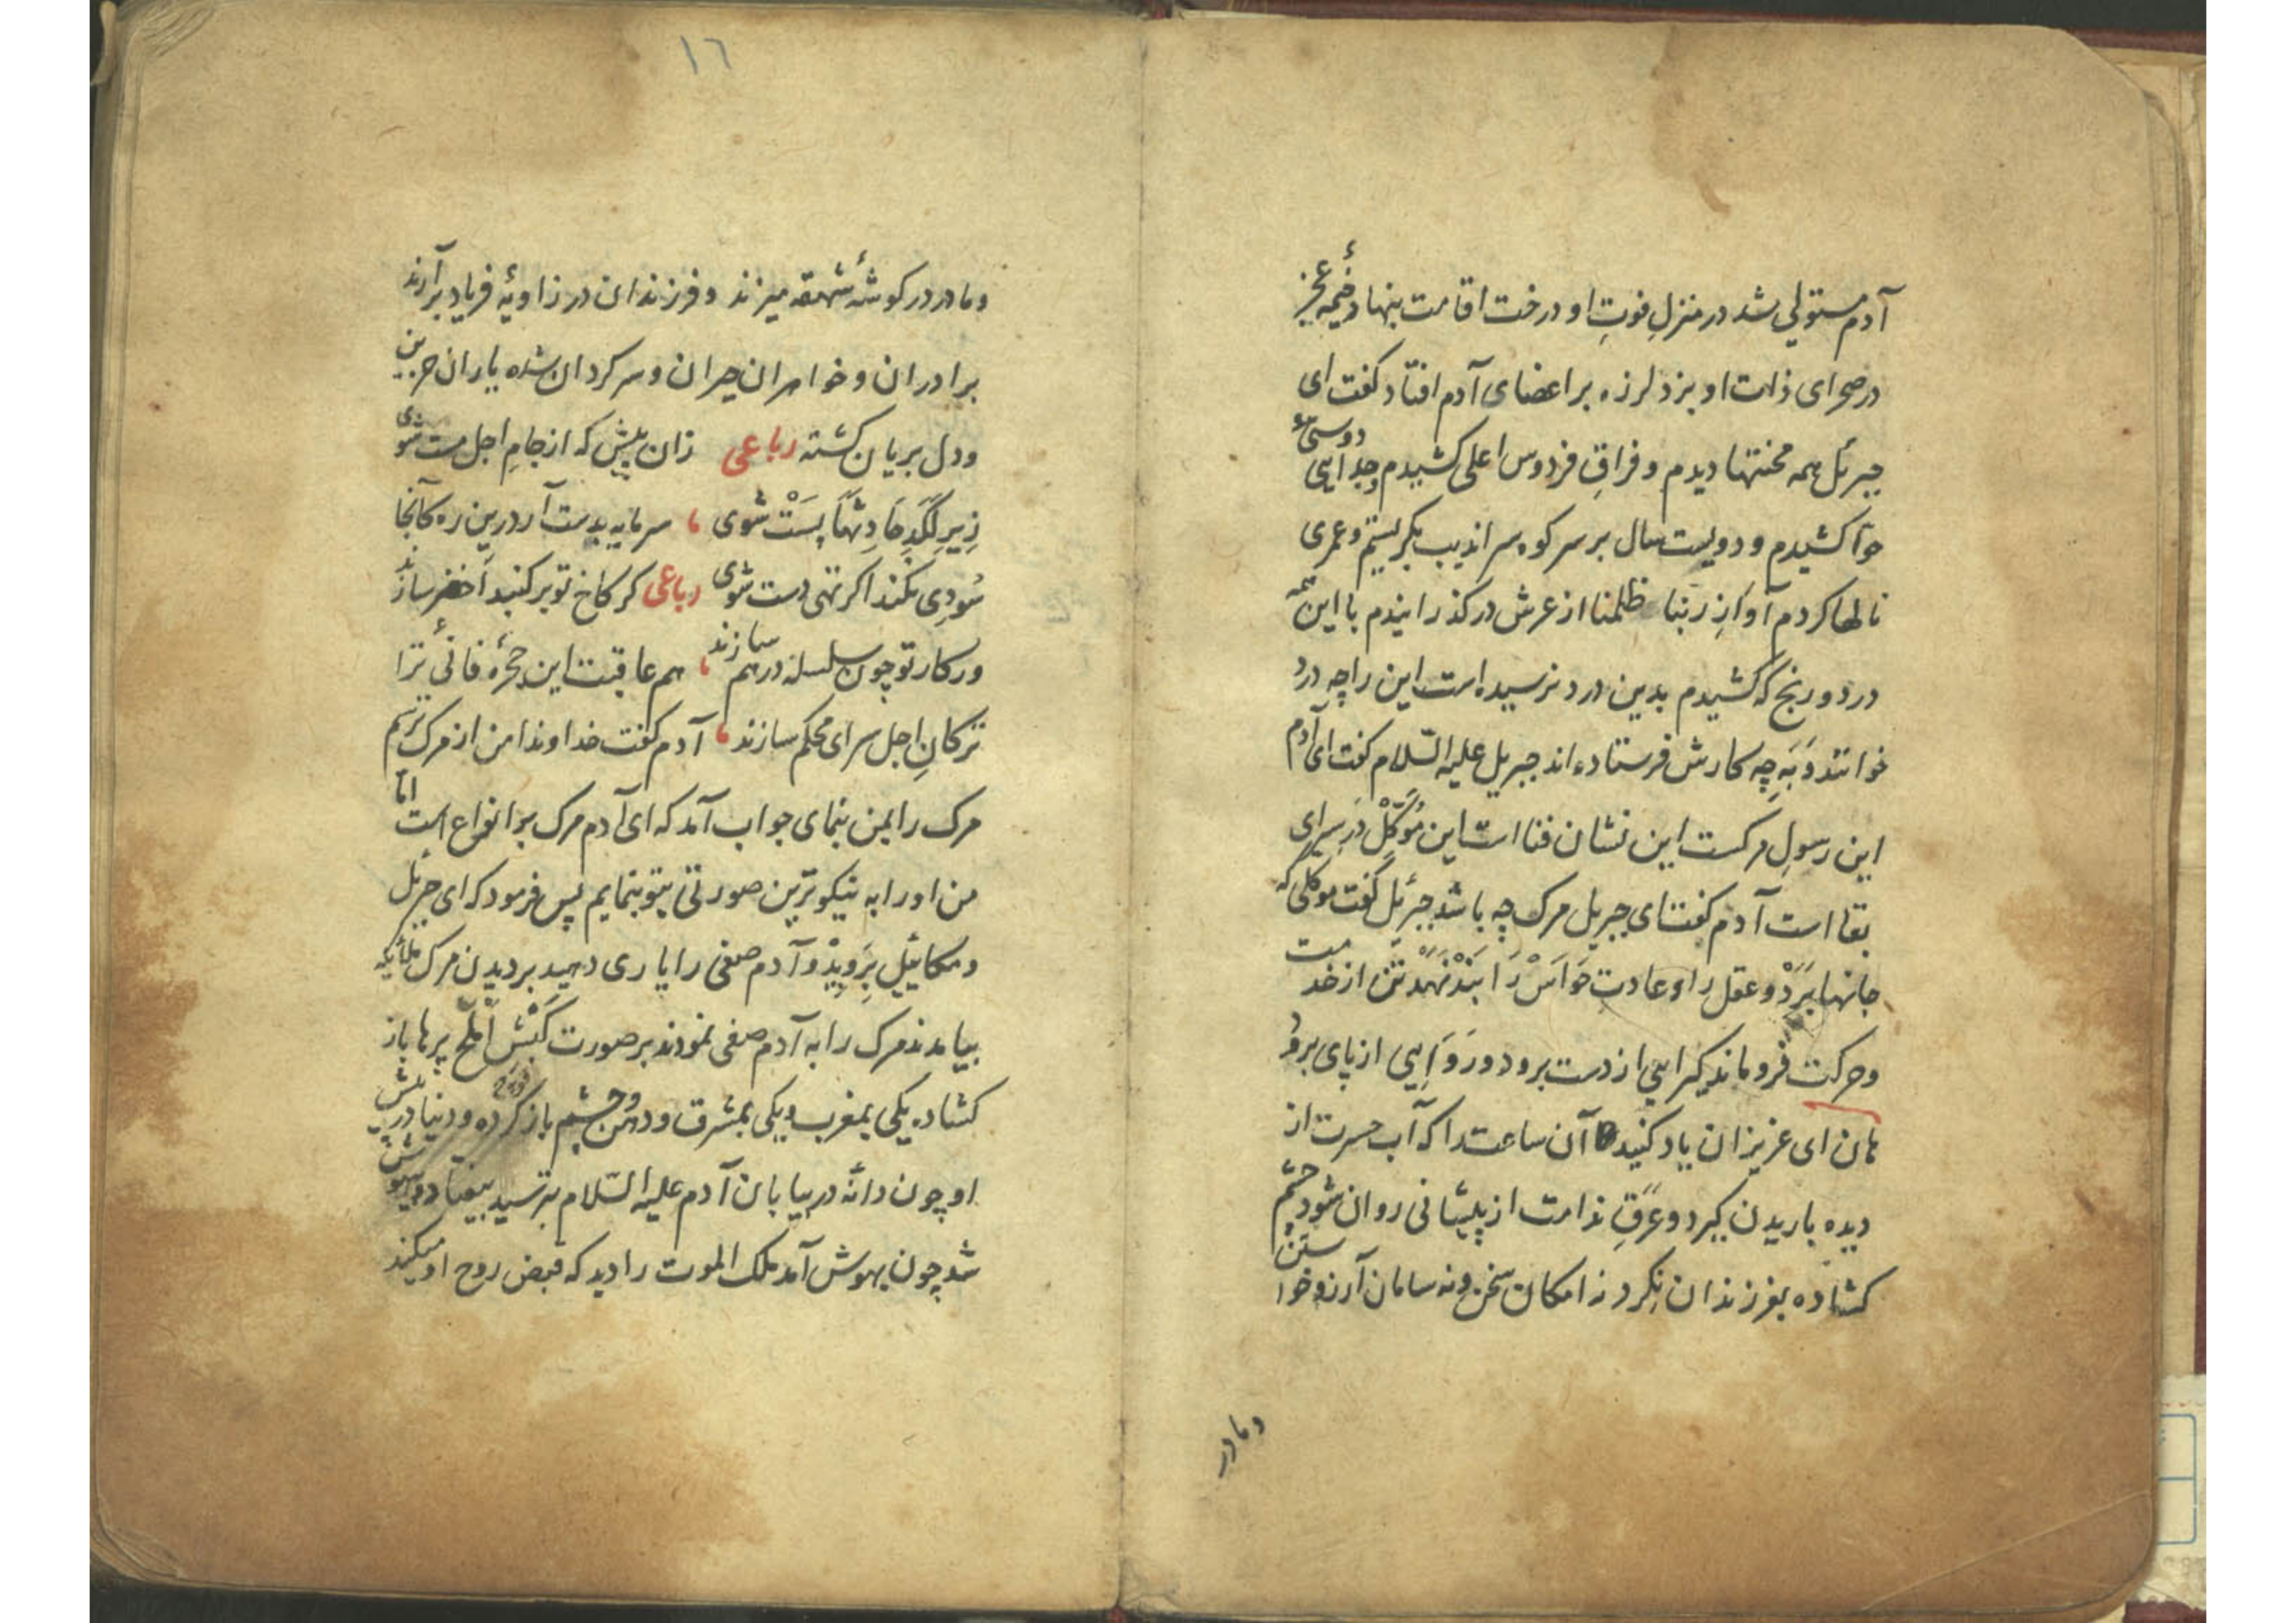 آدم مستولی شد در منزلِ فوتِ او درخت اقامت بنهاد و خیمهٔ عجز
در صحرای ذات او بزد لرزه بر اعضای آدم افتاد کفت ای
جبرئل همه محنتها دیدم و فراقِ فردوس اعلی کشیدم و جدایی دوستیٔ
حوّا کشیدم و دویست سال بر سر کوه سراندیب بکریستم و عمری
نالها کردم آوازِ ربّنا ظلمنا از عرش در کذرانیدم با این همه
درد و رنج که کشیدم بدین درد نرسیده است این را چه درد
خوانند وَ بَهِ چه کارش فرستاده اند جبریل علیه السّلام کفت ای آدم
این رسولِ مرکست این نشان فنا است این مُوَکّلْ دَرِ سرای
بقا است آدم کفت ای جبریل مرک چه باشد جبرئیل کفت موکلی که
جانها بَبَرَدْ و عقل را و عادت حَوَاسْ رَا بَنْدْ نَهَدْ تن از خدمت
و حرکت فرو ماند کیرایی از دست برود و رَوَایِی از پای برود
هان ای عزیزان یاد کنید آن ساعت را که آب حسرت از
دیده باریدن کیرد و عَرَقِ ندامت از پیشانی روان شود چشم
کشاده بفرزندان نِکرد نه امکان سخن و نه سامان آرزو خواستن
و مادر
١٦
و مادر در کوشهٔ شهقه میزند و فرزندان در زاویهٔ فریاد برآرند
برادران و خواهران حیران و سرکردان شده یاران حزین
و دل بریان کشته رباعی زان پیش که از جامِ اجل مست شوی
زِیرِ لَگَدِ حَادِثهَا پَسَتْ شوی ، سرمایه بدست آر درین ره کآنجا
سُودِی نکند اکر تهی دست شوی رباعی کر کاخ تو بر کنبد اخضر سازند
ور کار تو چون سلسله در هم سازند ، هم عاقبت این حجرهٔ فانیٔ ترا
ترکانِ اجل سرای محکم سازند ، آدم کفت خداوندا من از مرک ترسم
مرک را بمن بنمای جواب آمد که ای آدم مرک بر انواع است امّا
من او را به نیکو ترین صورتی بتو بنمایم پس فرمود که ای جبرئیل
و میکائیل بِرَوِیدْ وَ آدم صفی را یاری دهید بر دیدن مرک ملائکه
بیامدند مرک را به آدم صفی نمودند بر صورت کَبْش اَمْلَحْ پرها باز
کشاده یکی بمغرب و یکی بمشرق و دهن و چشم باز کرده و دنیا در پیش
او چون دانهٔ در بیابان آدم علیه السّلام بترسید بیفتاد و بیهوش
شد چون بهوش آمد ملک الموت را دید که قبض روح او میکند